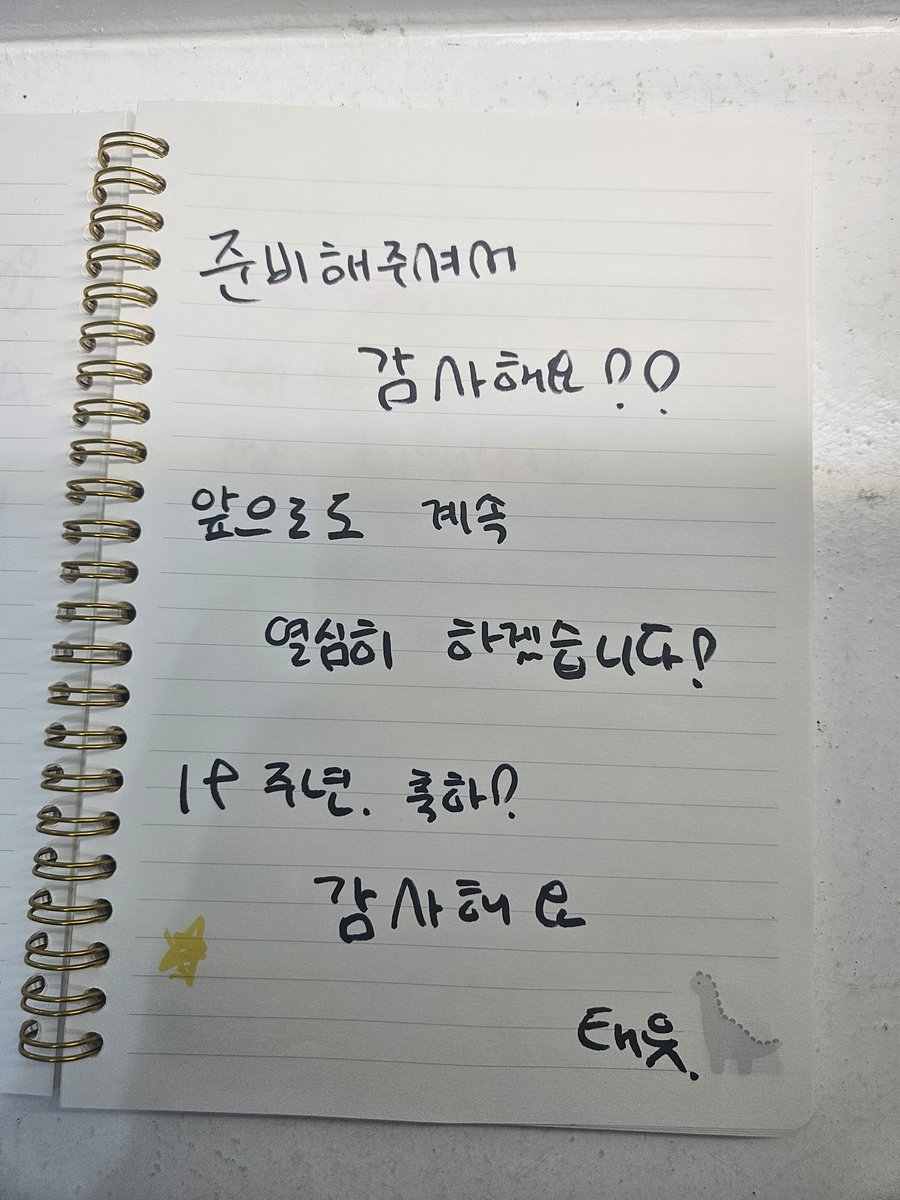 준비해주셔서
감사해요!!
앞으로도 계속
열심히 하겠습니다!
19주년. 축하!
감사해요
태웃.